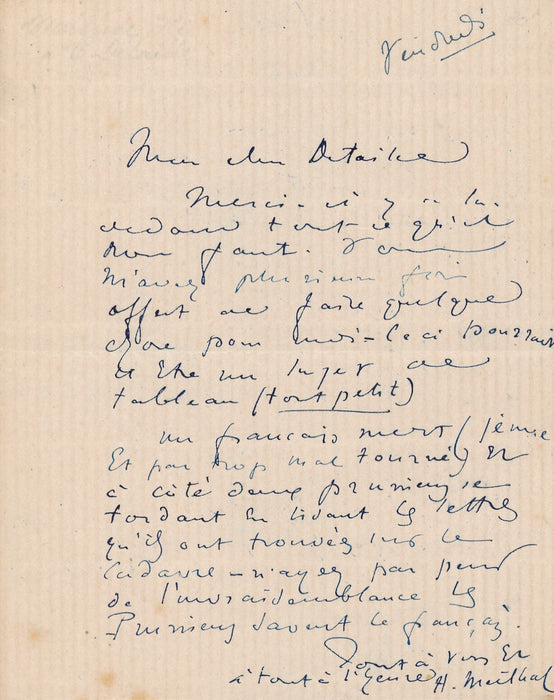 Vendredi
Mon cher Detaille
Merci - il y a là
dedans tout ce qu'il
nous faut. Vous
m'avez plusieurs fois
offert de faire quelque
chose pour moi - Ceci pourrait
il être un sujet de
tableau (tout petit)
un français mort (jeune
Et pas trop mal tourné) Et
à côté deux prussiens se
tordant en lisant les lettres
qu'ils ont trouvées sur le
cadavre - n'ayez pas peur
de l'invraisemblance les
Prussiens savent le français.
Tout à vous Et
à tout à l'heure H. Meilhac